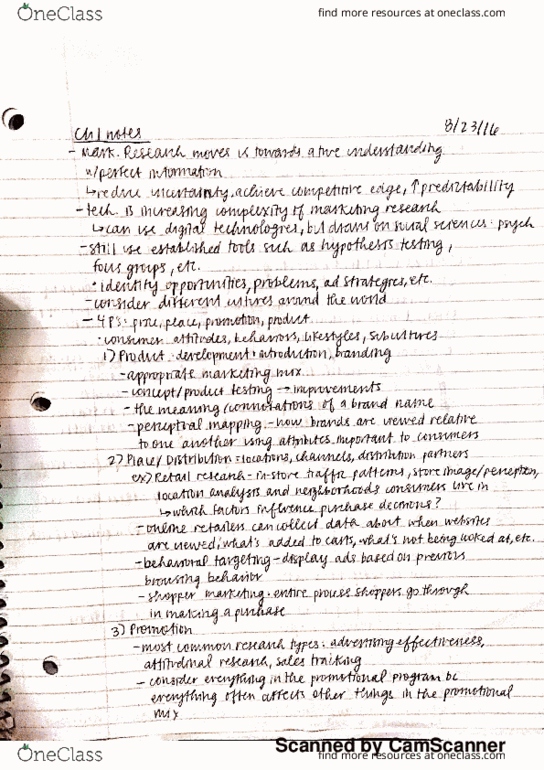 OneClass
find more resources at oneclass.com
find more resources at oneclass.com
8/23/16
Ch 1 notes
- Mark. Research moves us towards a true understanding
w/perfect information
↳ reduce uncertainty, achieve competitive edge, ↑ predictability
- tech. is increasing complexity of marketing research
↳ can use digital technologies, but draws on social sciences: psych
- still use established tools such as hypothesis testing,
focus groups, etc.
• identify opportunities, problems, ad strategies, etc.
- consider different cultures around the world
- 4 P's: price, place, promotion, product
• consumer attitudes, behaviors, lifestyles, subcultures
1) Product: development: introduction, branding
- appropriate marketing mix
- concept/product testing → improvements
- the meaning/connotations of a brand name
- perceptual mapping - how brands are viewed relative
to one another using attributes important to consumers
2) Place/Distribution: locations, channels, distribution partners
ex) Retail research - in-store traffic patterns, store image/perception,
location analysis and neighborhoods consumers live in
↳ which factors influence purchase decisions?
- online retailers can collect data about when websites
are viewed, what's added to carts, what's not being looked at, etc.
- behavioral targeting - display ads based on previous
browsing behavior
- shopper marketing: entire process shoppers go through
in making a purchase
3) Promotion
- most common research types: advertising effectiveness,
attitudinal research, sales tracking
- consider everything in the promotional program bc
everything often affects other things in the promotional
mix
Scanned by CamScanner
OneClass
find more resources at oneclass.com
find more resources at oneclass.com